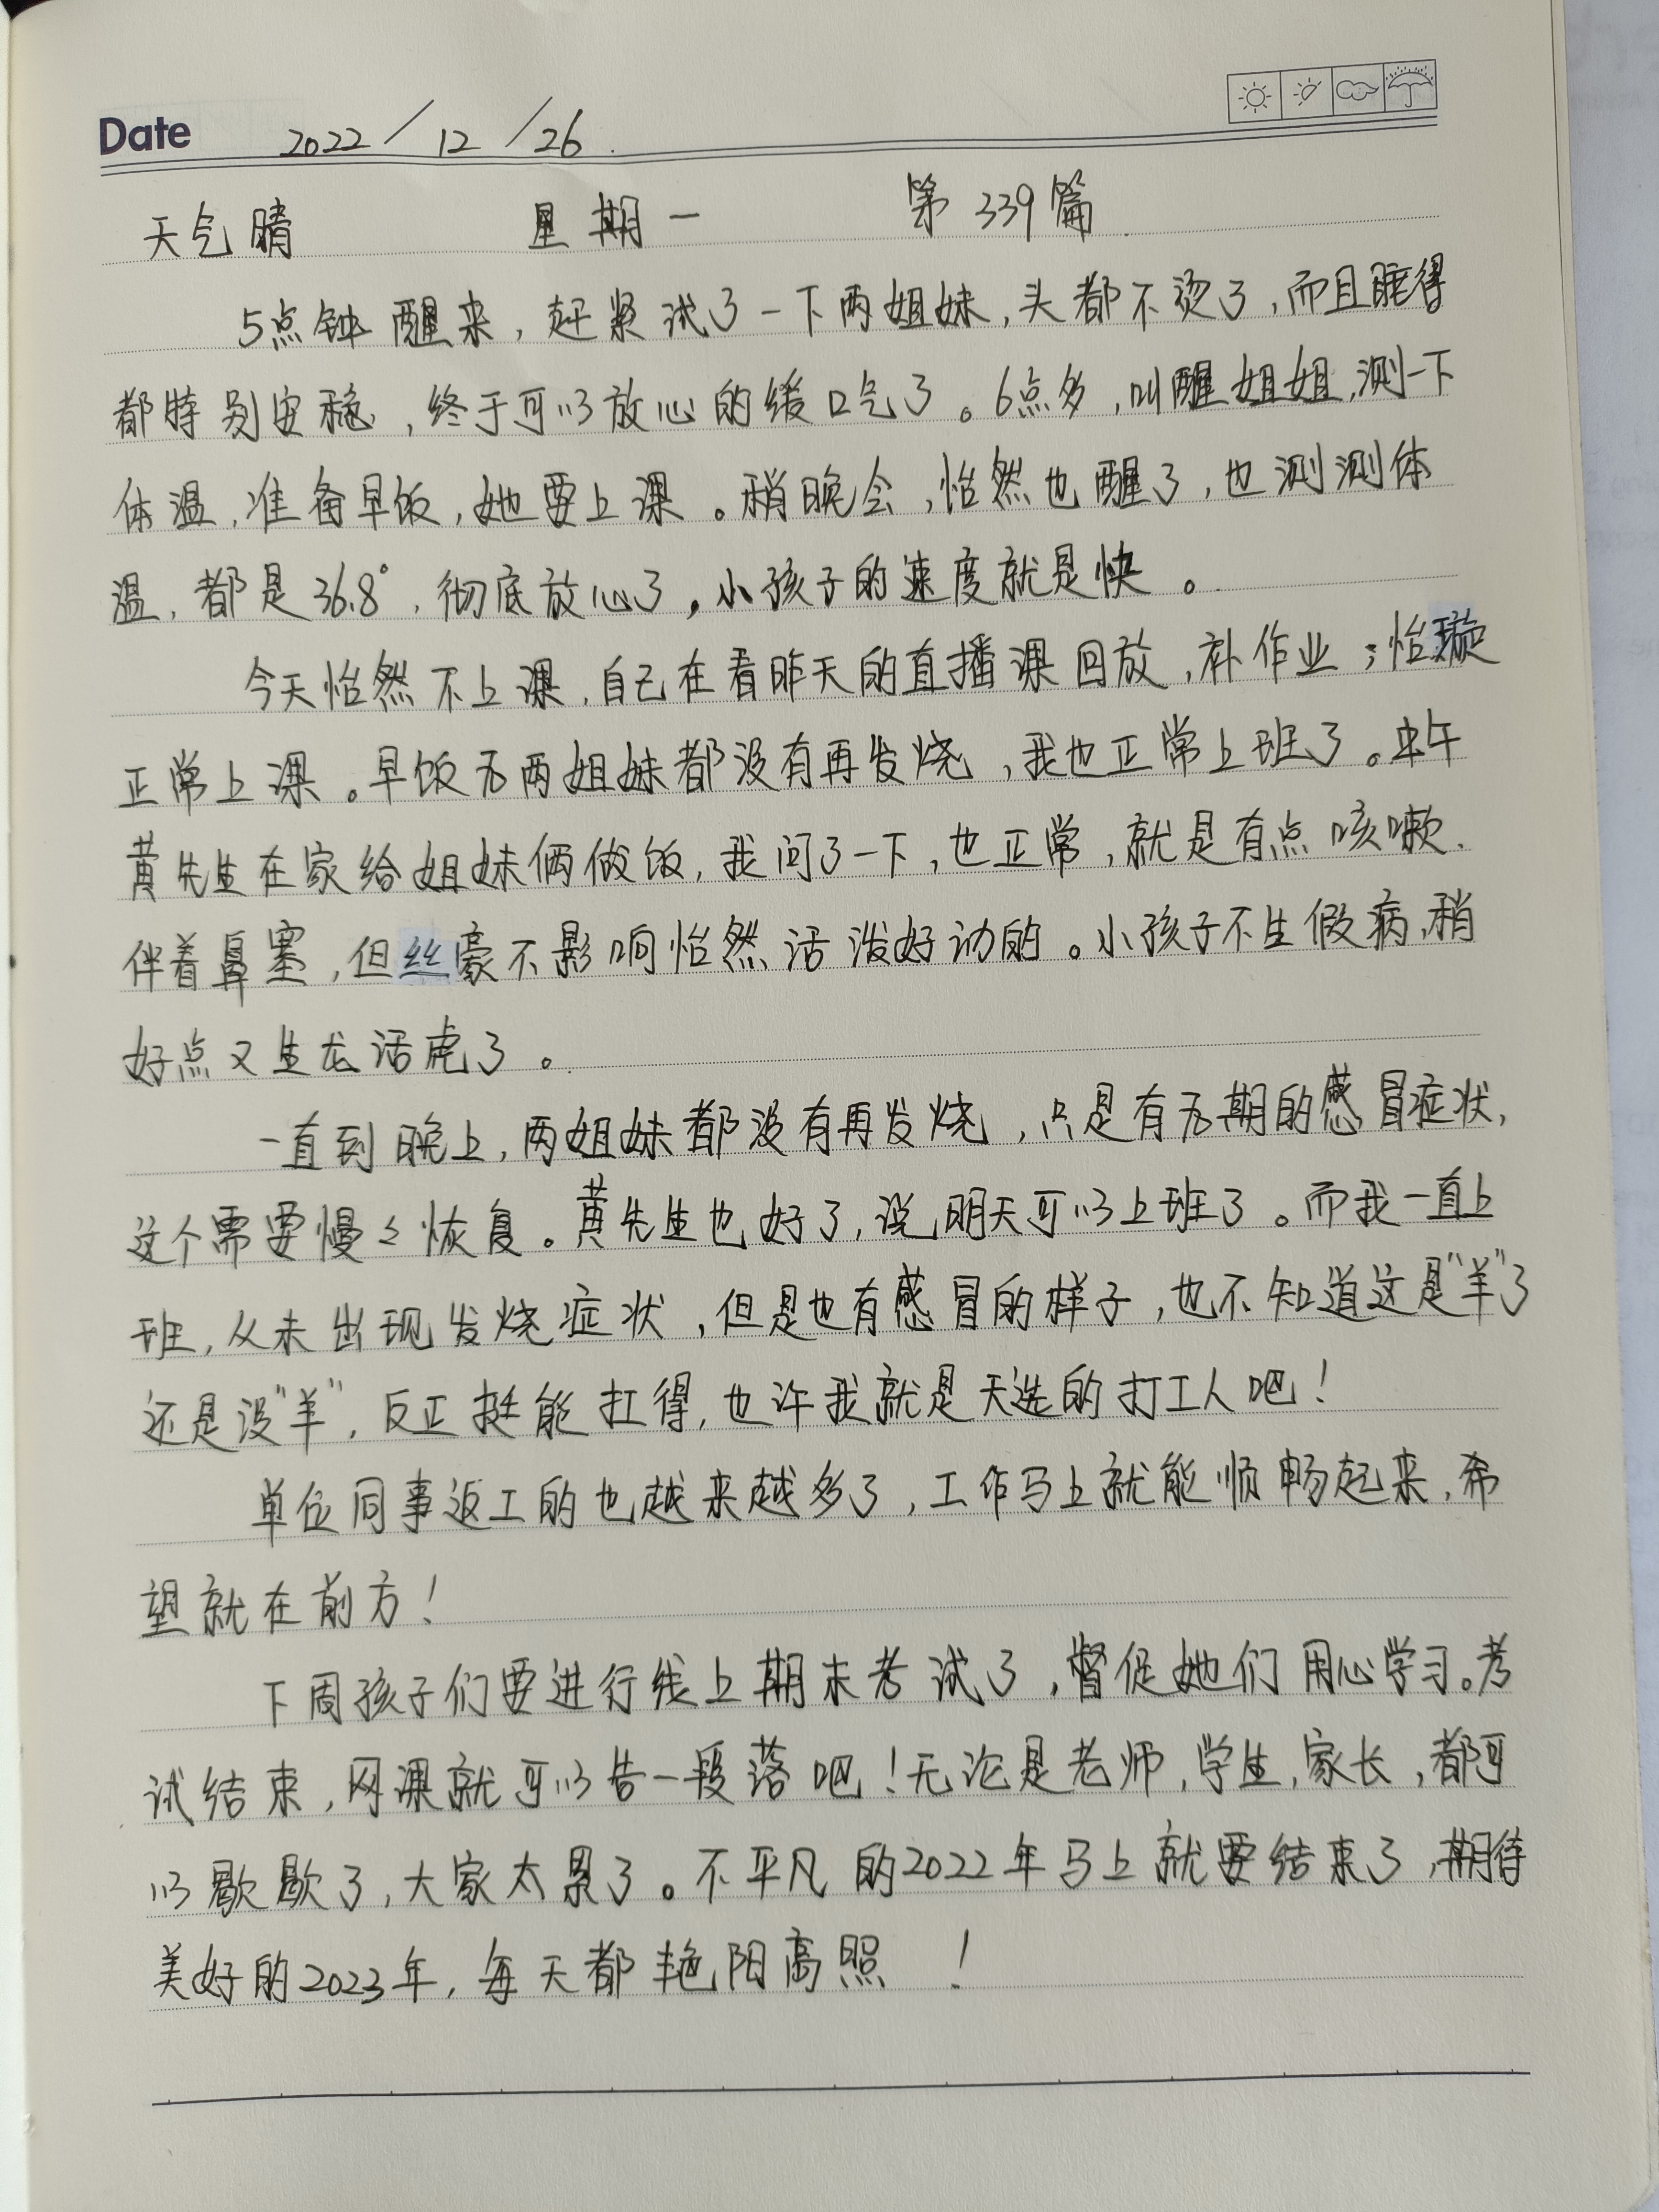 Date 2022/12/26.
天气晴 星期一 第339篇.
5点钟醒来，赶紧试了一下两姐妹，头都不烫了，而且睡得
都特别安稳，终于可以放心的缓口气了。6点多，叫醒姐姐，测一下
体温，准备早饭，她要上课。稍晚会，怡然也醒了，也测测体
温，都是36.8°，彻底放心了，小孩子的速度就是快。
今天怡然不上课，自己在看昨天的直播课回放，补作业；怡璇
正常上课。早饭后两姐妹都没有再发烧，我也正常上班了。中午
黄先生在家给姐妹俩做饭，我问了一下，也正常，就是有点咳嗽.
伴着鼻塞，但丝豪不影响怡然活泼好动的。小孩子不生假病，稍
好点又生龙活虎了。
一直到晚上，两姐妹都没有再发烧，只是有后期的感冒症状，
这个需要慢々恢复。黄先生也好了，说明天可以上班了。而我一直上
班，从未出现发烧症状，但是也有感冒的样子，也不知道这是“羊”了
还是没“羊”，反正挺能扛得，也许我就是天选的打工人吧！
单位同事返工的也越来越多了，工作马上就能顺畅起来，希
望就在前方！
下周孩子们要进行线上期末考试了，督促她们用心学习。考
试结束，网课就可以告一段落吧！无论是老师，学生，家长，都可
以歇歇了，大家太累了。不平凡的2022年马上就要结束了，期待
美好的2023年，每天都艳阳高照！